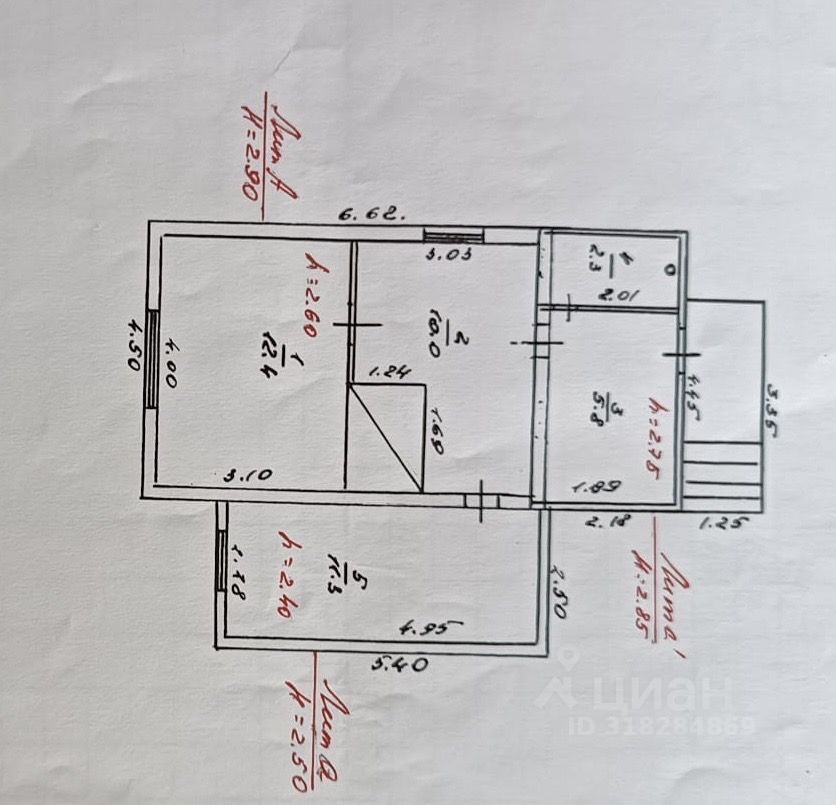 Лит А
H=2.90
6.62.
3.03
4
2.3
2.01
h=2.60
2
10.0
1
12.4
4.50
4.00
1.24
1.69
3
5.8
h=2.75
4.45
3.35
3.10
1.89
2.18
1.25
5
11.3
h=2.40
2.50
4.95
5.40
Лит а'
H=2.85
Лит а
H=2.50
циан
ID 318284869